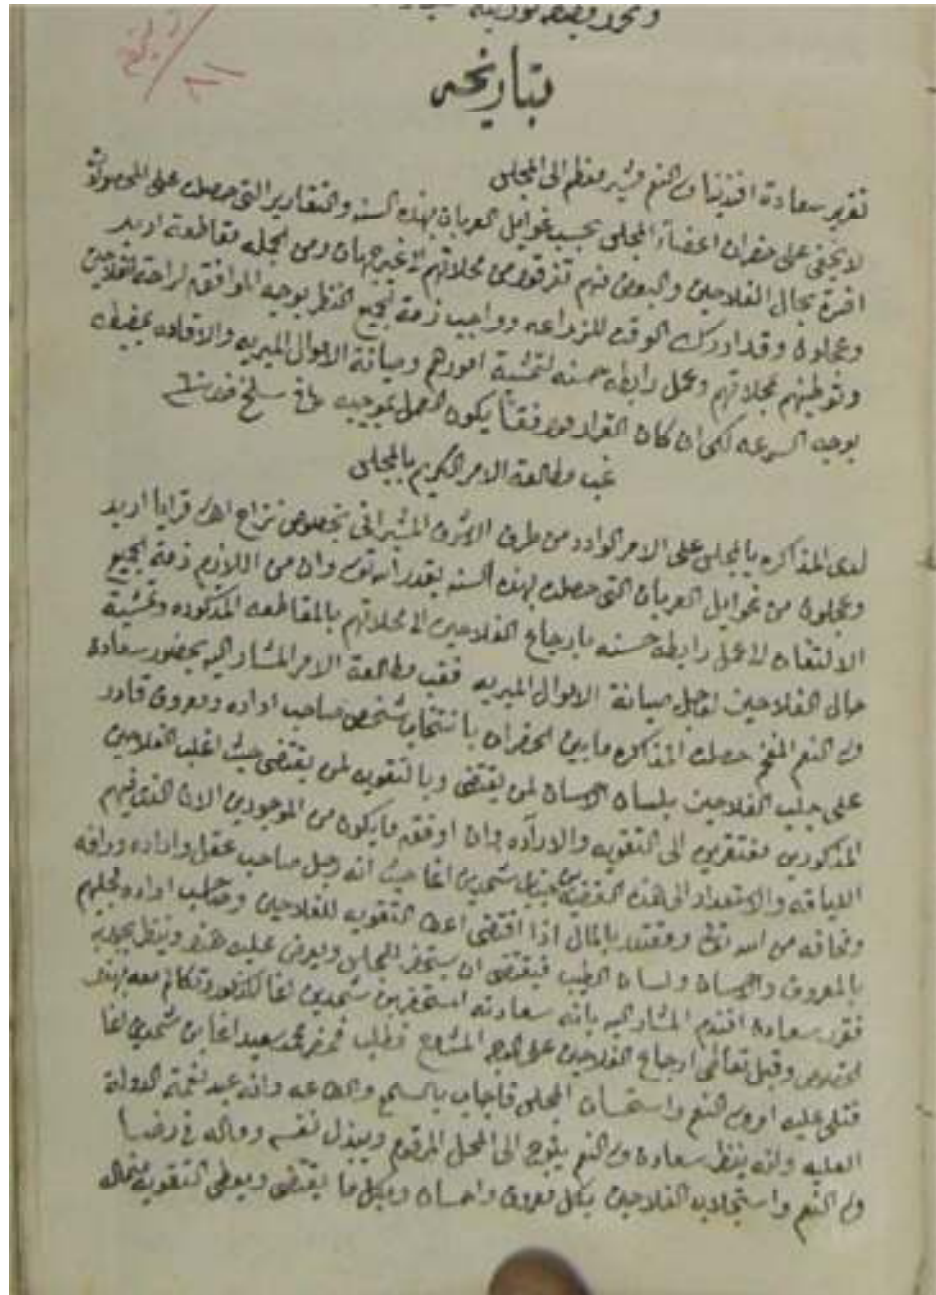 بتاريخه
تقرير سعادة افندينا ولي النعم مشير معظم الى المجلس
لا يخفى على حضرات اعضاء المجلس بحسب غوايل العربان بهذه السنه والتقادير التي حصلت على
اضرة بحال الفلاحين والبعض منهم تفرقوا من محلاتهم الى غير جهات ومن الجمله مقاطعة اربد
وعجلون وقد ادرك الوقت للزراعه وواجب ذمة الجميع النظر بوجه الموافق لراحة الفلاحين
وتوطينهم بمحلاتهم وعمل رابطه حسنه لتمشية امورهم وصيانة الاموال الميريه والافاده بمضبطه
بوجه السرعه لكي ان كان القرار موافقاً يكون العمل بموجبه في سلخ
غب مطالعة الامر الكريم بالمجلس
لدى المذاكره بالمجلس على الامر الوارد من طرف الاشرف المشيراني بخصوص نزاح اهالي قرايا اربد
وعجلون من غوايل العربان التي حصلت بهذه السنه بقدر الله تعالى وان من اللازم ذمة الجميع
الالتفات الى عمل رابطه حسنه بارجاع الفلاحين الى محلاتهم بالمقاطعه المذكوره وتمشية
حال الفلاحين لاجل صيانة الاموال الميريه فغب مطالعة الامر المشار اليه بحضور سعادة
ولي النعم المفخم حصلت المذاكره ما بين الحضرات بانتخاب شخص صاحب اداره ومعروف قادر
على جلب الفلاحين بلسان الاحسان لمن يقتضي وبالتقويه لمن يقتضي حيث اغلب الفلاحين
المذكورين مفتقرين الى التقويه والاداره وان اوفقه ما يكون من الموجودين الان الذي فيهم
اللياقه والاستعداد الى هذه القضيه جناب شمدين اغا حيث انه رجل صاحب عقل واداره ورافه
ومخافه من الله تعالى ومقتدر بالمال اذا اقتضى اعطا التقويه للفلاحين وصاحب اداره لجلبهم
بالمعروف والاحسان ولسان الطيب فيقتضي ان يستحضر للمجلس ويعرض عليه هذه وينظر بجوابه
فقرر سعادة افندم المشار اليه بانه سعادته استحضر شمدين اغا المذكور وتكالم معه بهذا
الخصوص وقبل تعاطي ارجاع الفلاحين على الوجه المشروح فطلب فحضر محمد سعيد اغا بن شمدين اغا
فتلي عليه امر ولي النعم واستحسان المجلس فاجاب بالسمع والطاعه وانه عبد نعمة الدولة
العليه وانه بنظر سعادة ولي النعم يتوجه الى المحل المرقوم ويبذل نفسه وماله في رضا
ولي النعم واستجلاب الفلاحين بكل معروف واحسان وبكل ما يقتضي ويعطي التقويه من ماله